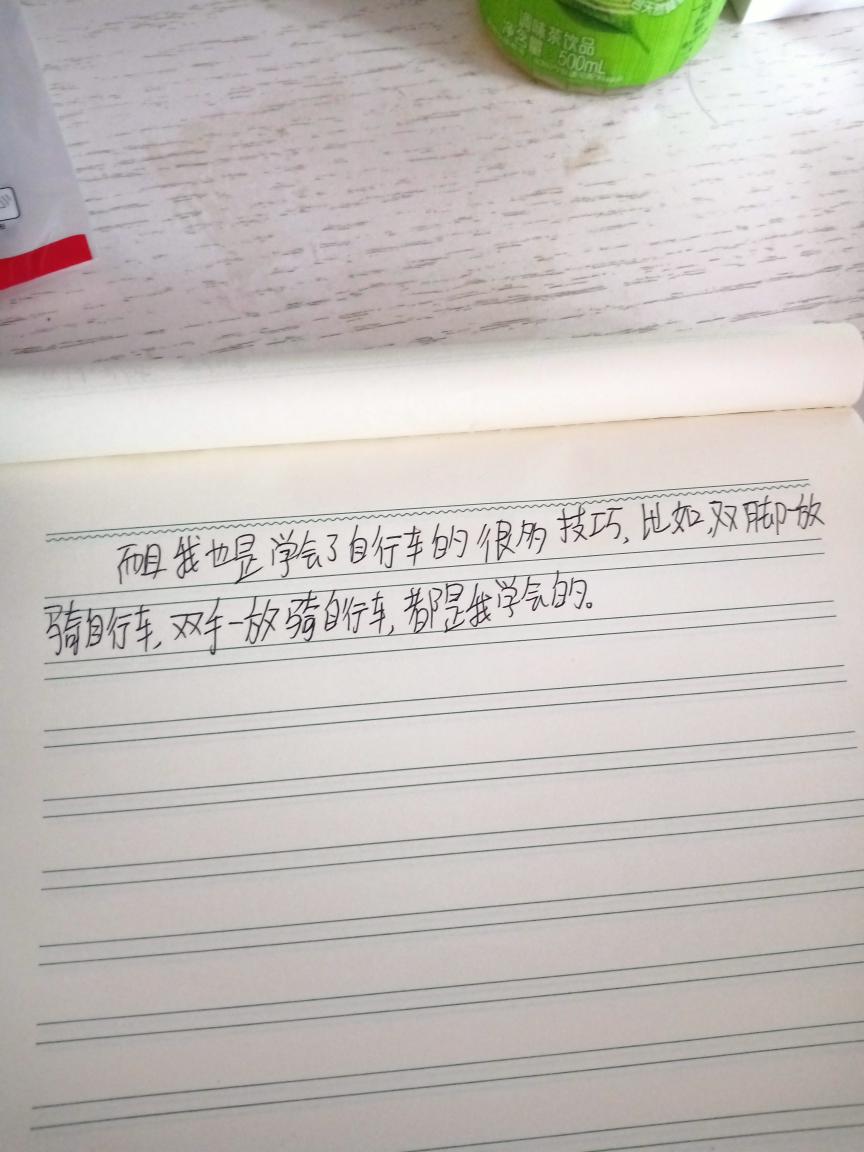 调味茶饮品
净含量 500mL
而且我也是学会了自行车的很多技巧,比如,双脚一放
骑自行车,双手一放骑自行车,都是我学会的。